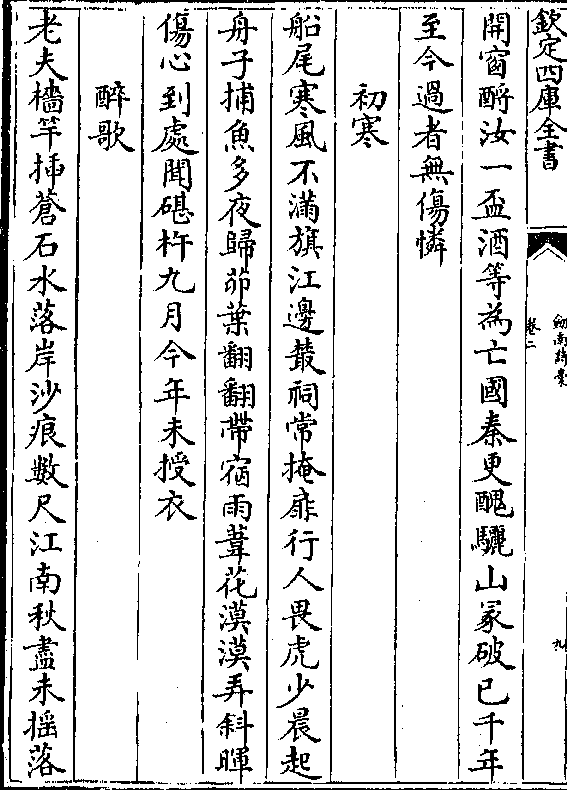 欽定四庫全書
劒南詩槀
卷二
九
開窗酹汝一盃酒等為亡國秦更醜驪山冢破已千年
至今過者無傷憐
初寒
船尾寒風不滿旗江邊叢祠常掩扉行人畏虎少晨起
舟子捕魚多夜歸茆葉翻翻帶宿雨葦花漠漠弄斜暉
傷心到處聞碪杵九月今年未授衣
醉歌
老夫檣竿揷蒼石水落岸沙痕數尺江南秋盡未揺落